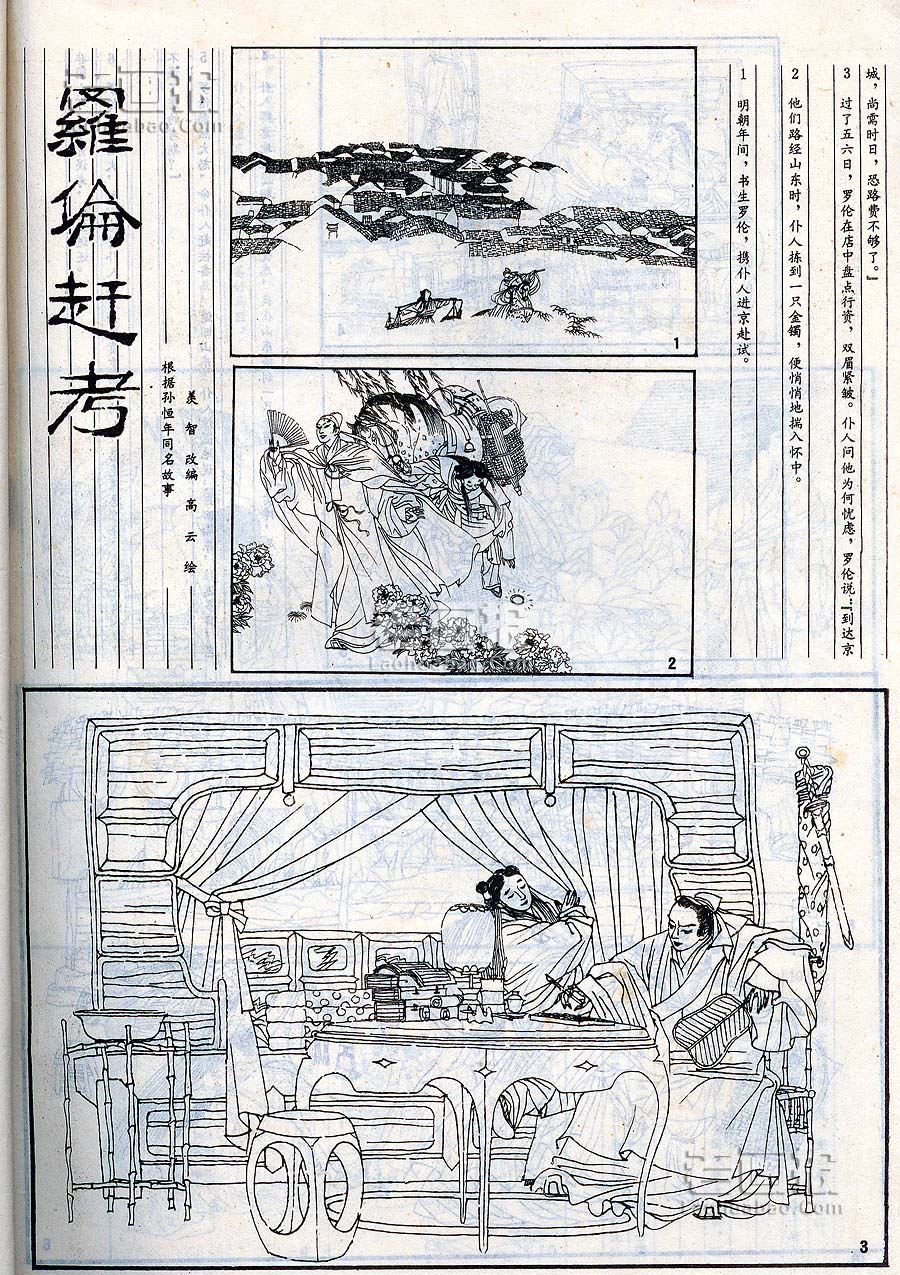 羅倫赶考
美智改编 高云绘
根据孙恒年同名故事
1 明朝年间，书生罗伦，携仆人进京赴试。
2 他们路经山东时，仆人拣到一只金镯，便悄悄地揣入怀中。
3 过了五六日，罗伦在店中盘点行资，双眉紧皱。仆人问他为何忧虑，罗伦说：“到达京
城，尚需时日，恐路费不够了。”
1
2
3